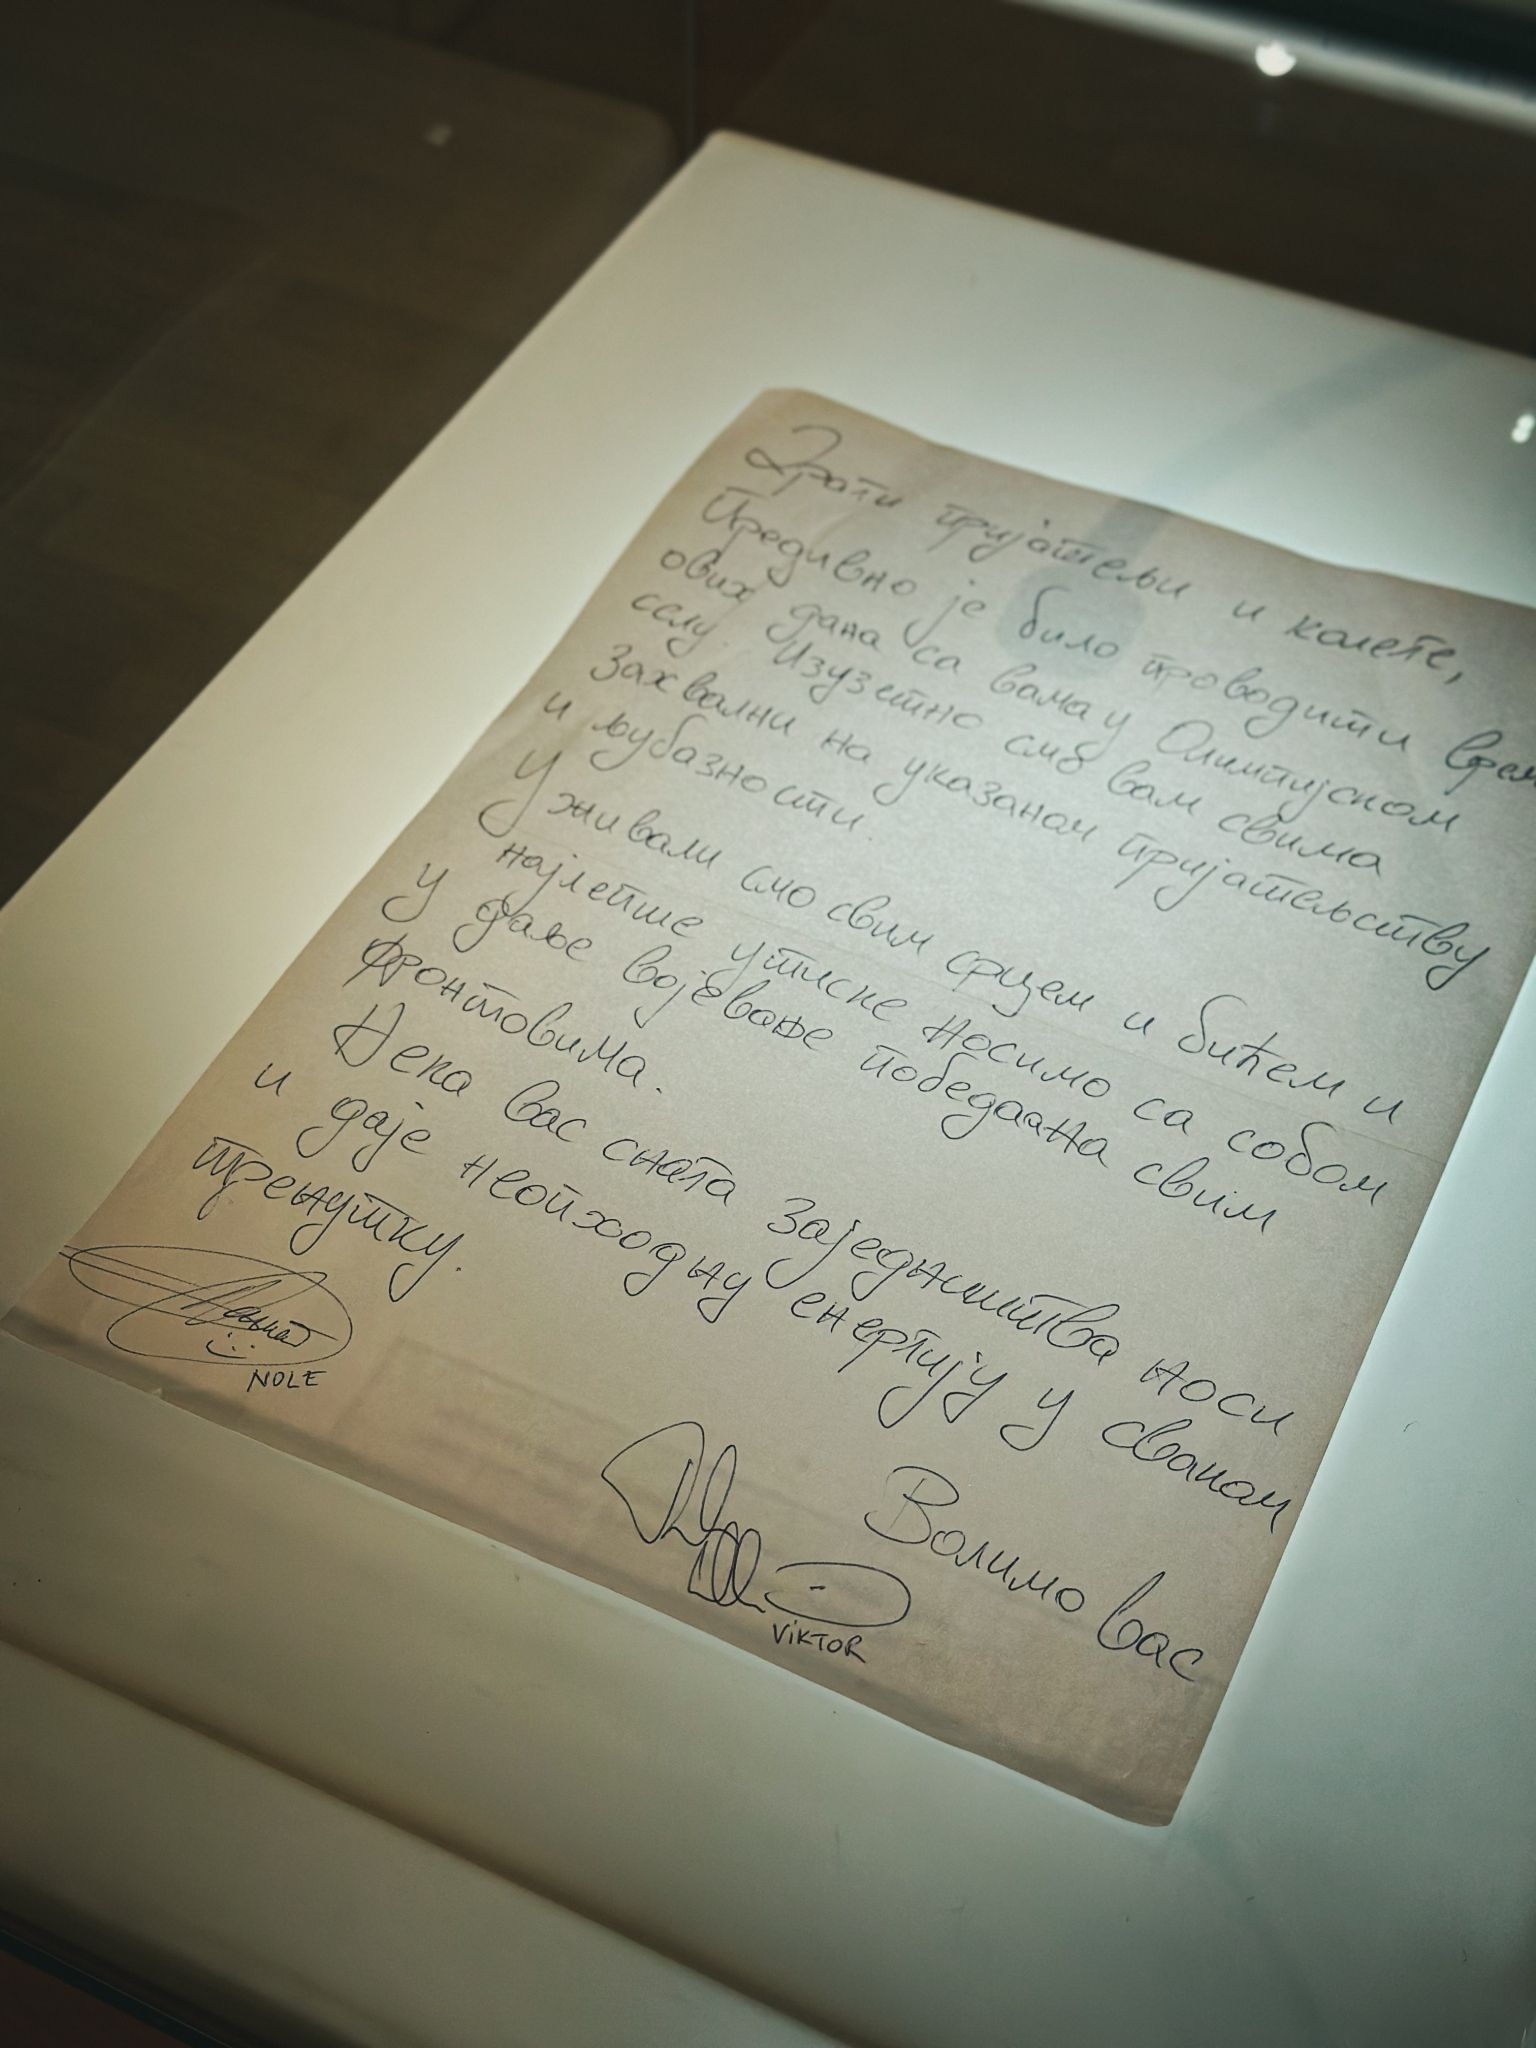 Драги пријатељи и колеге,
Предивно је било проводити врем
ових дана са вама у Олимпијском
селу. Изузетно смо вам свима
захвални на указаном пријатељству
и љубазности.
Уживали смо свим срцем и бићем и
најлепше утиске носимо са собом
у даље војевање победаана свим
фронтовима.
Нека вас снага заједништва носи
и даје неопходну енергију у сваком
тренутку.
NOLE
Волимо вас
VIKTOR